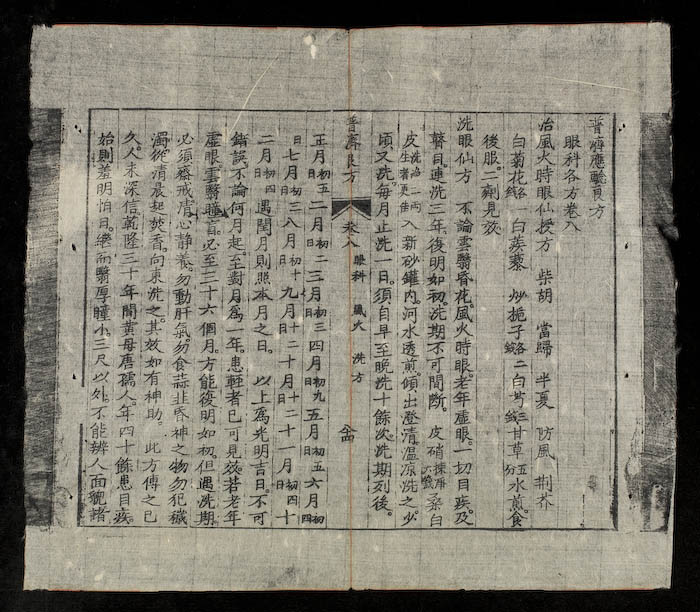 普濟應驗良方
眼科各方卷八
治風火時眼仙授方 柴胡 當歸 半夏 防風 荆芥
白菊花各一錢 白蒺藜 炒梔子各二錢 白芍三錢 甘草五分 水煎。食
後服。二劑見效
洗眼仙方 不論雲翳昏花。風火時眼。老年虛眼。一切目疾。及
瞽目。連洗三年。復明如初。洗期不可間斷。 皮硝揀淨六錢 桑白
皮洗浴一兩生者更佳 入新砂罐內。河水透煎。傾出澄清溫凉洗之。少
頃又洗。每月止洗一日。須自早至晚洗十餘次。洗期列後。
普濟良方 卷八 眼科 風火 洗方
正月初五日 二月初二日 三月初三日 四月初九日 五月初五日 六月初四
日 七月初三日 八月初十日 九月十二日 十月十二日 十一月初四日 十
二月初四日 遇閏月則照本月之日。 以上爲光明吉日。不可
錯誤。不論何月起。至對月爲一年。患輕者已可見效。若老年
虛眼。雲翳瞳盲。必至三十六個月。方能復明如初。但遇洗期。
必須齋戒。清心靜養。勿動肝氣。勿食蒜韭昏神之物。勿犯穢
濁。從清晨起焚香。向東洗之。其效如有神助。 此方傳之已
久。人未深信。乾隆三十年間。黃母唐孺人。年四十餘患目疾。
始則羞明怕日。繼而翳厚瞳小。三尺以外。不能辨人面貌。諸